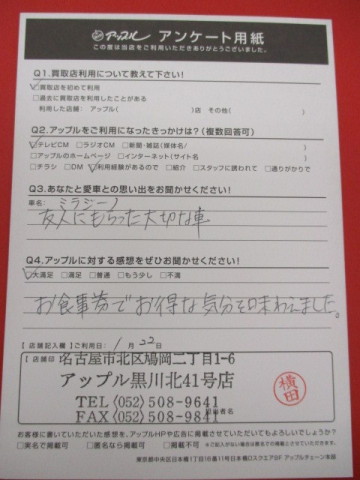 アップル アンケート用紙
この度は当店をご利用いただきありがとうございました。
Q1.買取店利用について教えて下さい!
買取店を初めて利用
過去に買取店を利用したことがある
利用した店舗:アップル( )店 その他( )
Q2.アップルをご利用になったきっかけは?(複数回答可)
テレビCM ラジオCM 新聞・雑誌(媒体名/ )
アップルのホームページ インターネット(サイト名 )
チラシ DM 利用経験があるので 紹介 スタッフに誘われて 通りがかりで
Q3.あなたと愛車との思い出をお聞かせください!
車名:ミラジーノ
友人にもらった大切な車
Q4.アップルに対する感想をぜひお聞かせください!
大満足 満足 普通 もう少し 不満
お食事券でお得な気分を味わえました。
【店舗記入欄】ご利用日: 1月22日
【店舗印】
名古屋市北区鳩岡二丁目1-6
アップル黒川北41号店
TEL〈052〉508-9641
FAX〈052〉508-9841
担当者名
横田
お客様に書いていただいた感想を、アップルHPや広告に掲載させていただいてもよろしいでしょうか?
実名で掲載可 匿名なら掲載可 掲載不可
東京都中央区日本橋1丁目16番11号日本橋Dスクエア5F アップルチェーン本部